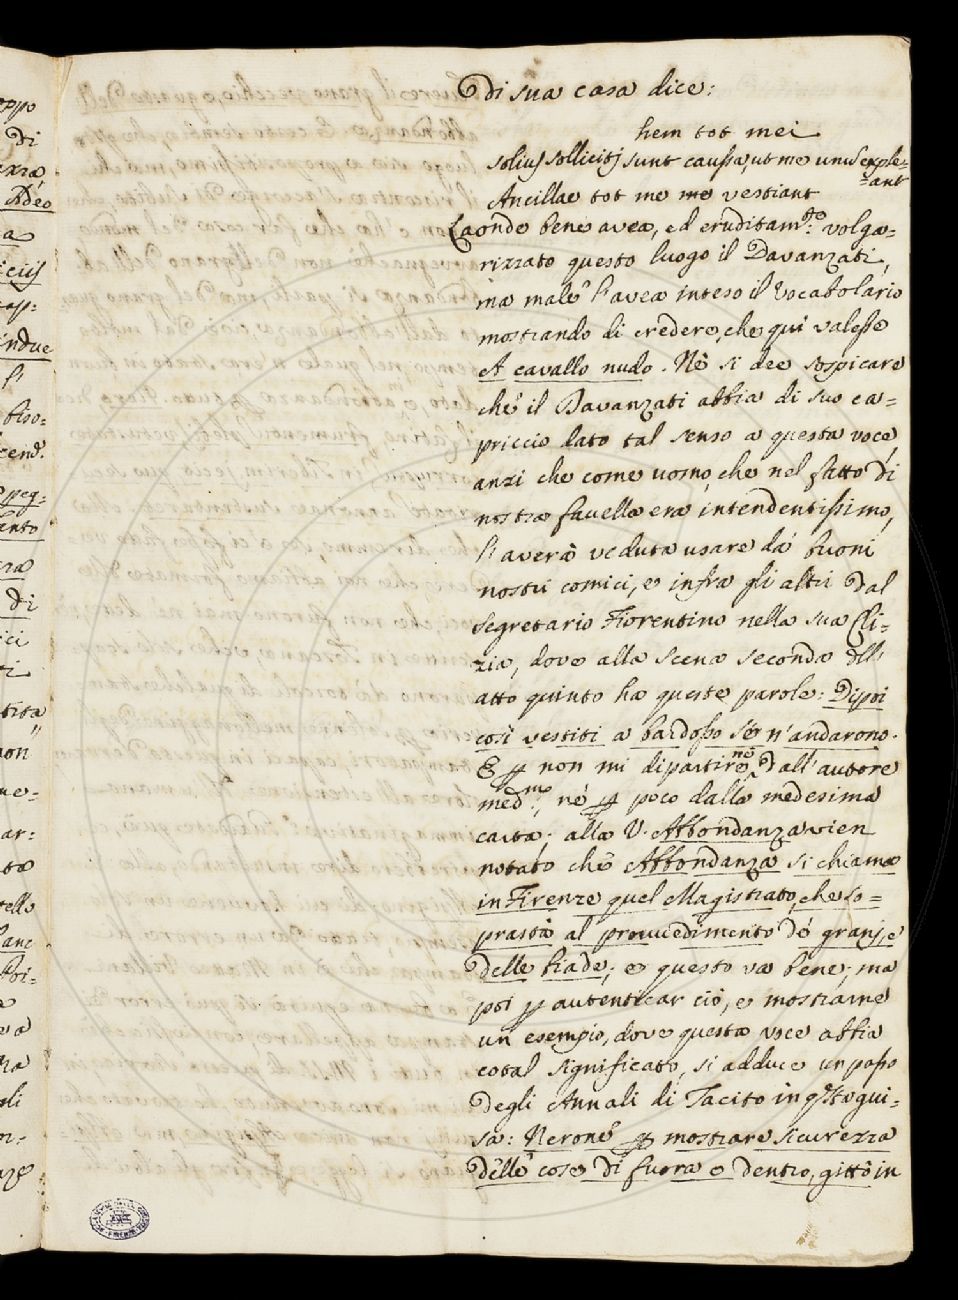 oppo
di
Adeo
a
indue
l'
biso=
peg=
anto
di
ici
ti
non
ar:
ta
tello
gli
Di sua casa dice:
hem tot mei
solius solliciti sunt caussa, ut me unu exple=
=ant
Ancillae tot me me vestiant
Laonde bene avea, ed eruditam.te volga=
rizzato questo luogo il Davanzati,
ma male l'avea inteso il Vocabolario
mostrando di credere, che qui valesse
A cavallo nudo. Nè si dee sospicare
che il Davanzati abbia di suo ca=
priccio dato tal senso a questa voce,
anzi che come uomo, che nel fatto di
nostra favella era intendentissimo,
l'averà veduta usare da' buoni
nostri comici, e infra gli altri dal
Segretario Fiorentino nella sua Cli=
zia, dove alla scena seconda dell'
atto quinto ha queste parole: Dipoi
così vestiti a bardosso se n'andarono.
E p non mi dipartire ne dall'autore
med.mo, nè p poco dalla medesima
carta; alla V. Abbondanza vien
notato che Abbondanza si chiama
in Firenze quel Magistrato, che so=
prastà al provvedimento de' grani, e
delle biade; e questo va bene; ma
poi p autenticar ciò, e mostrarne
un esempio, dove questa voce abbia
cotal significato, si adduce un passo
degli Annali di Tacito in q.sta gui=
sa: Nerone p mostrare sicurezza
delle cose di fuora e dentro, gittò in